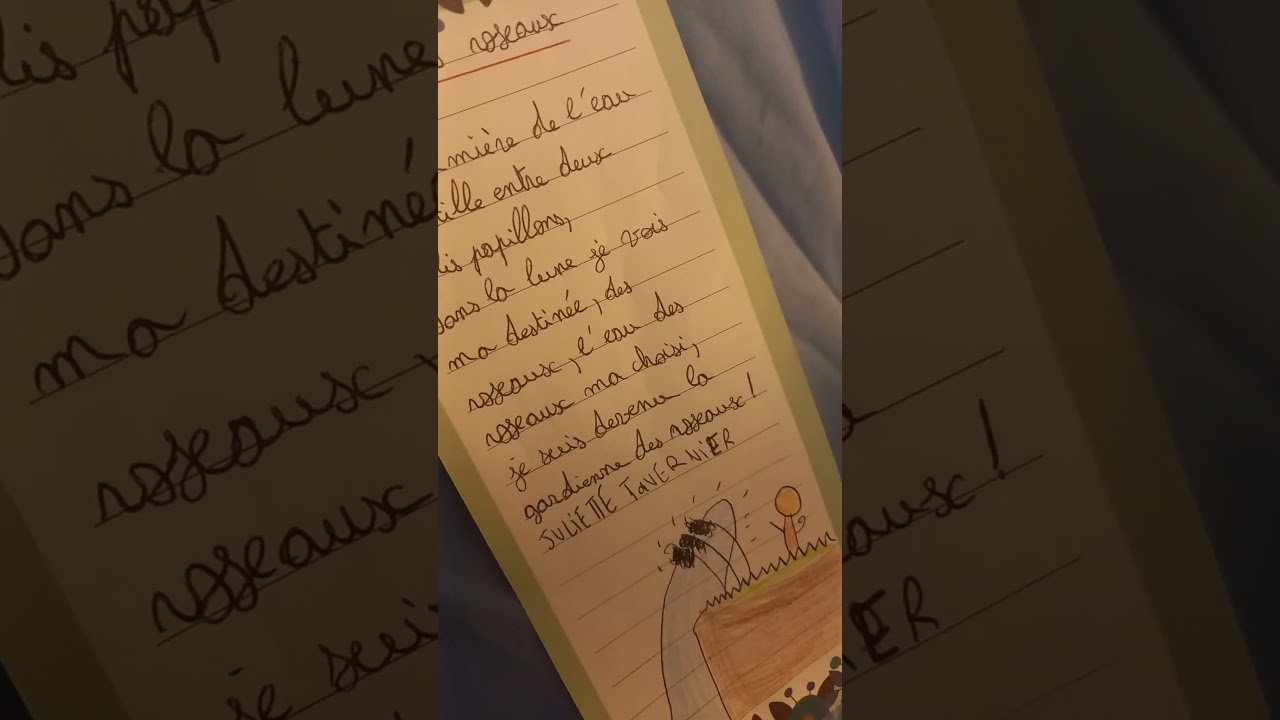 roseaux
mière de l'eau
ille entre deux
lis papillons,
dans la lune je vois
ma destinée, des
roseaux, l'eau des
roseaux ma choisi,
je suis devenu la
gardienne des roseaux!
JULIETTE TAVERNIER